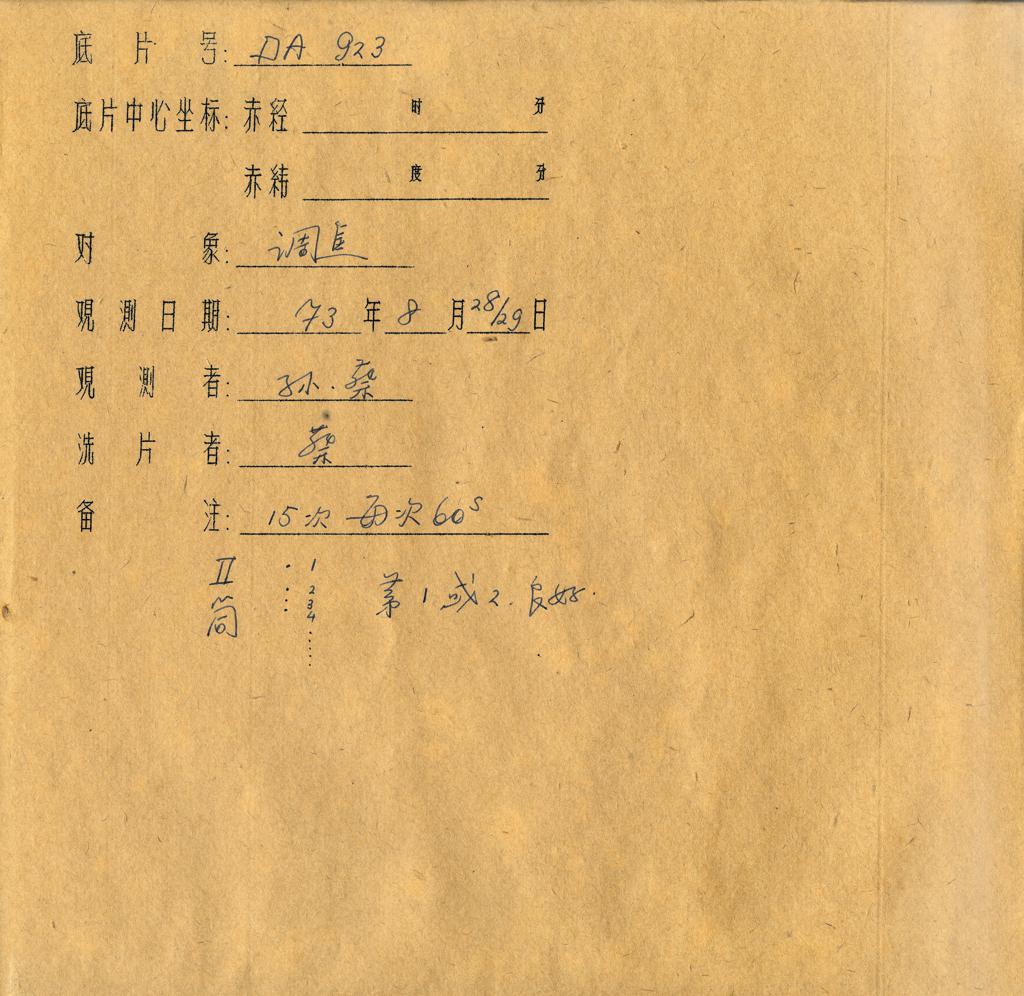 底片号: DA 923
底片中心坐标: 赤经 时 分
赤纬 度 分
对象: 调焦
观测日期: 73年8月28/29日
观测者: 孙.蔡
洗片者: 蔡
备注: 15次 每次60s
II 筒 1 2 3 4 ...... 第1或2.良好.